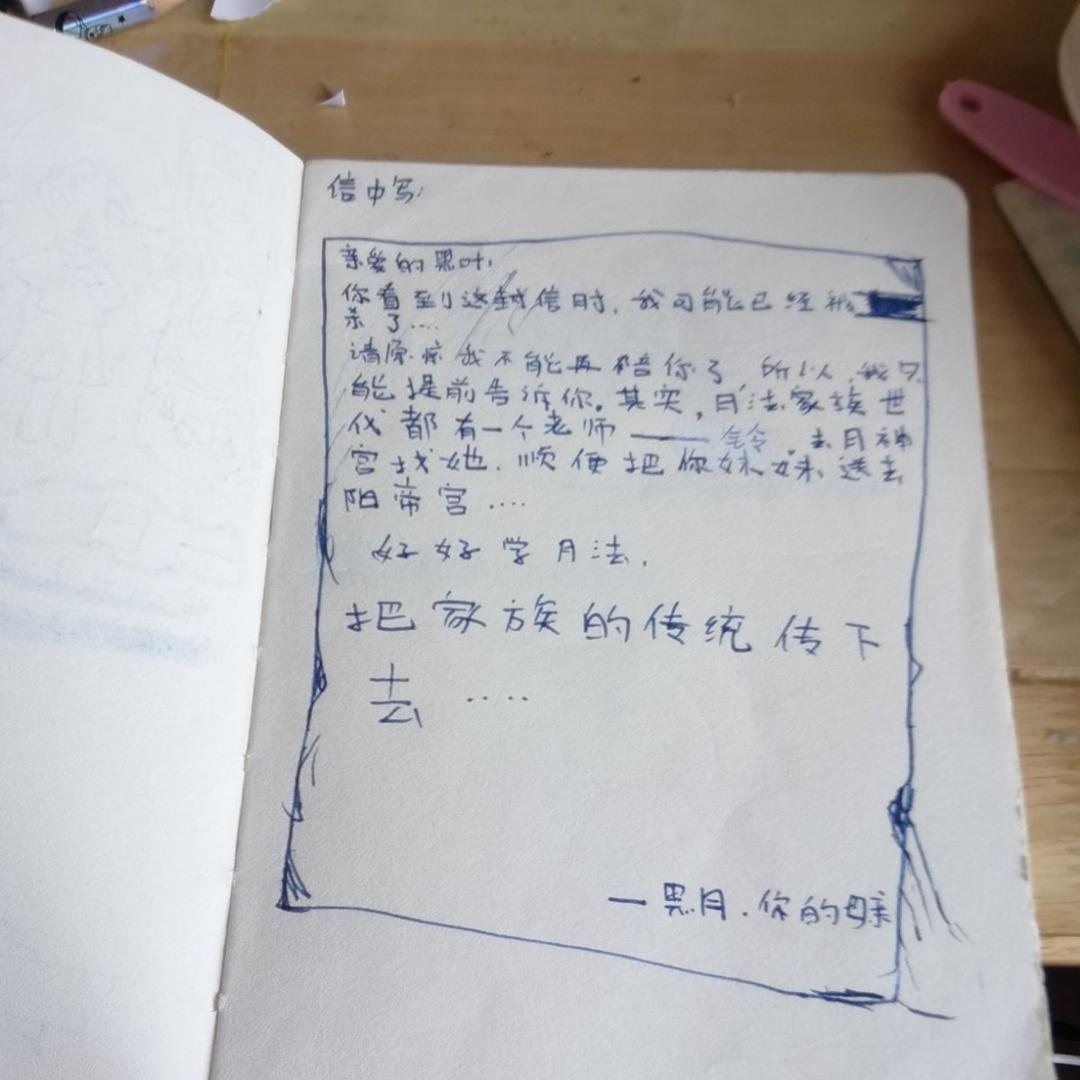 信中写:
亲爱的黑叶:
你看到这封信时,我可能已经被
杀了....
请原谅我不能再陪你了 所以,我只
能提前告诉你。其实,月法家族世
代都有一个老师——铃.去月神
宫找她.顺便把你妹妹送去
阳帝宫....
好好学月法.
把家族的传统传下
去....
一黑月.你的母亲